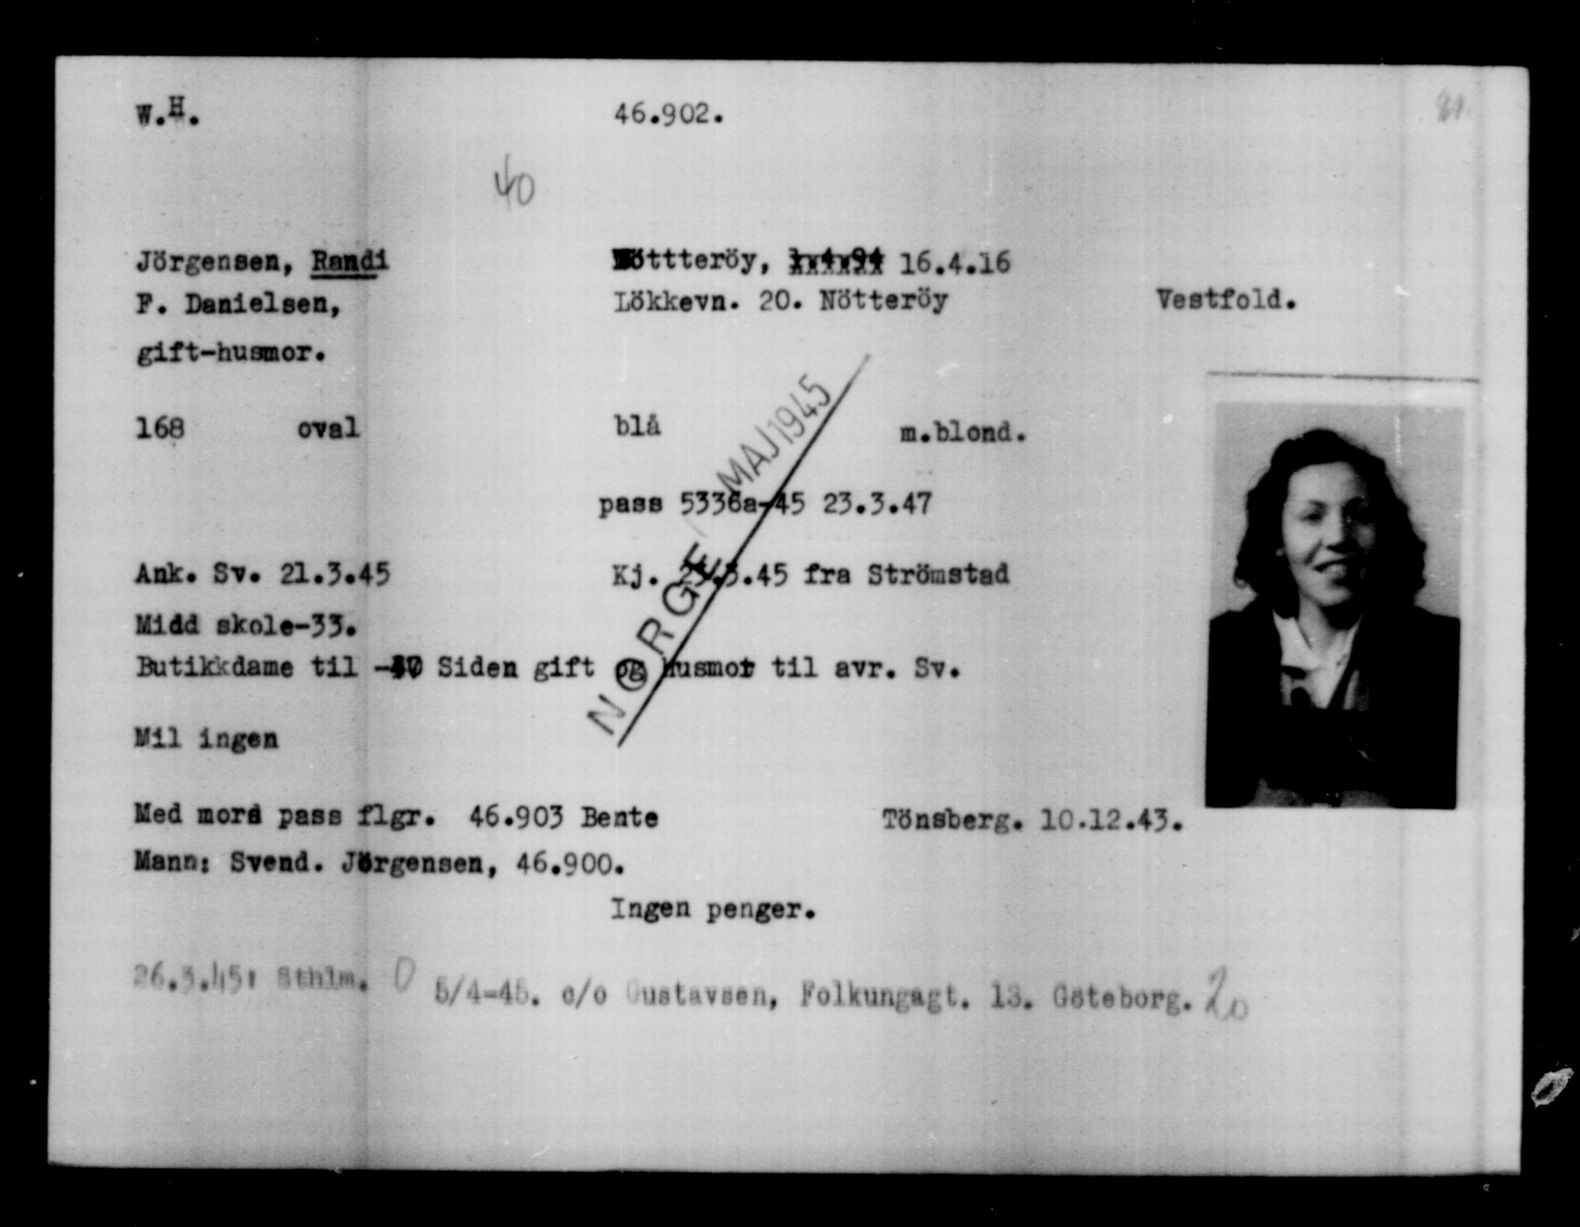 W.H. 46.902.
40
Jörgensen, Randi Nöttteröy, 1.4.94 16.4.16
F. Danielsen, Lökkevn. 20. Nötteröy Vestfold.
gift-husmor.
168 oval blå m.blond.
MAJ 1945
pass 5336a-45 23.3.47
Ank. Sv. 21.3.45 Kj. 23.3.45 fra Strömstad
NORGE
Midd skole-33.
Butikkdame til -40 Siden gift og husmor til avr. Sv.
Mil ingen
Med mors pass flgr. 46.903 Bente Tönsberg. 10.12.43.
Mann: Svend. Jörgensen, 46.900.
Ingen penger.
26.3.45: Sthlm. 0 5/4-45. c/o Gustavsen, Folkungagt. 13. Göteborg. 20